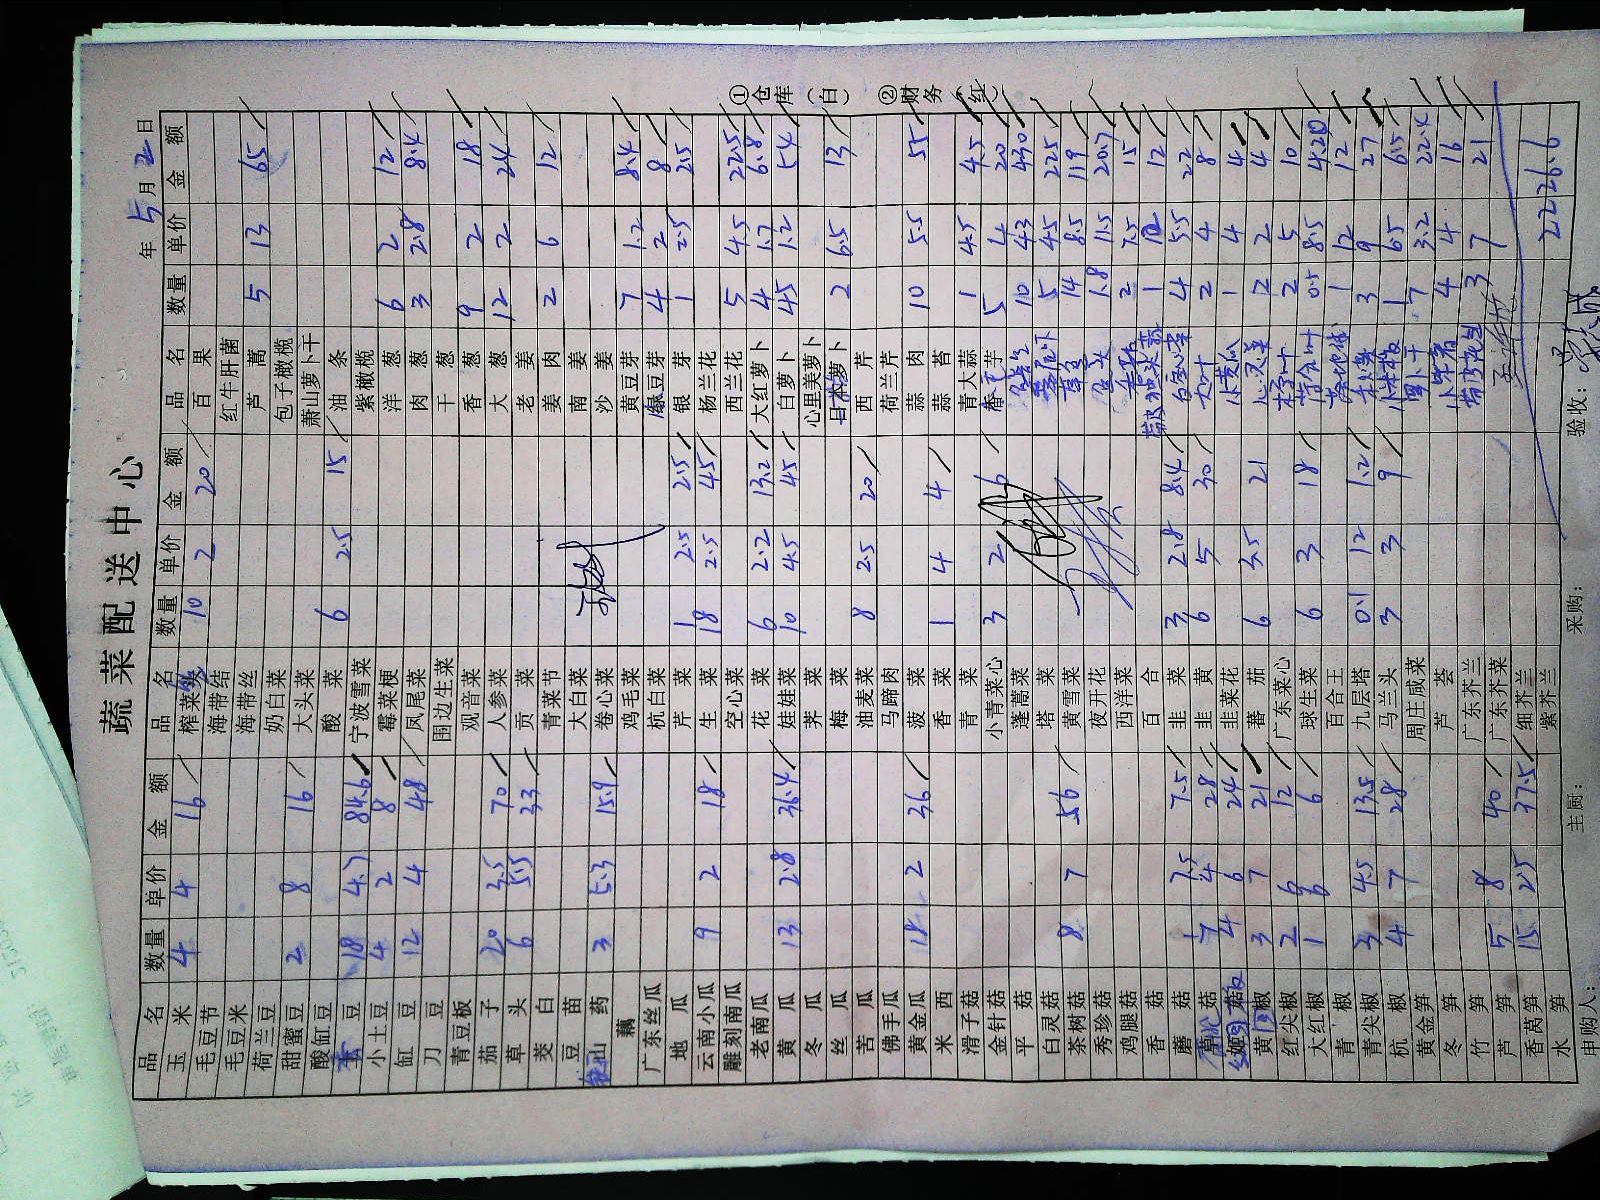 蔬菜配送中心
年 5 月 2 日
品名 数量 单价 金额 品名 数量 单价 金额 品名 数量 单价 金额
玉米 4 4 16 榨菜头 10 2 20 百果
毛豆节 海带结 红牛肝菌
毛豆米 海带丝 芦蒿 5 13 65
荷兰豆 奶白菜 包子橄榄
甜蜜豆 2 8 16 大头菜 萧山萝卜干
酸缸豆 酸菜 6 2.5 15 油条
豆 18 4.7 84.6 宁波雪菜 紫橄榄
小土豆 4 2 8 霉菜梗 洋葱 6 2 12
缸豆 12 4 48 凤尾菜 肉葱 3 2.8 8.4
刀豆 围边生菜 干葱
青豆板 观音菜 香葱 9 2 18
茄子 20 3.5 70 人参菜 大葱 12 2 24
草头 6 5.5 33 贡菜 老姜
茭白 青菜节 姜肉 2 6 12
豆苗 大白菜 南姜
山药 3 5.3 15.9 卷心菜 沙姜
藕 鸡毛菜 黄豆芽 7 1.2 8.4
广东丝瓜 杭白菜 绿豆芽 4 2 8
地瓜 芹菜 1 2.5 2.5 银芽 1 2.5 2.5
云南小瓜 9 2 18 生菜 18 2.5 45 杨兰花
雕刻南瓜 空心菜 西兰花 5 4.5 22.5
老南瓜 花菜 6 2.2 13.2 大红萝卜 4 1.7 6.8
黄瓜 13 2.8 36.4 娃娃菜 10 4.5 45 白萝卜 45 1.2 54
冬瓜 荠菜 心里美萝卜
丝瓜 梅菜 日本萝卜 2 6.5 13
苦瓜 油麦菜 8 2.5 20 西芹
佛手瓜 马蹄肉 荷兰芹
黄金瓜 18 2 36 菠菜 蒜肉 10 5.5 55
米西 香菜 1 4 4 蒜苔
滑子菇 青菜 青大蒜 1 4.5 4.5
金针菇 小青菜心 3 2 6 香芋 5 4 20
平菇 蓬蒿菜 10 43 430
白灵菇 塔菜 5 45 225
茶树菇 8 7 56 黄雪菜 14 8.5 119
秀珍菇 夜开花 1.8 11.5 20.7
鸡腿菇 西洋菜 2 7.5 15
香菇 百合 1 12 12
蘑菇 1 7.5 7.5 韭菜 3 2.8 8.4 4 5.5 22
菇 7 4 28 韭黄 6 5 30 大叶 2 4 8
4 6 24 韭菜花 小黄瓜 1 4 4
黄椒 3 7 21 蕃茄 6 3.5 21 2 2 4
红尖椒 2 6 12 广东菜心 2 5 10
大红椒 1 6 6 球生菜 6 3 18 0.5 8.5
青椒 百合王 1 12 12
青尖椒 3 4.5 13.5 九层塔 0.1 12 1.2 3 9 27
杭椒 4 7 28 马兰头 3 3 9 1 65 6.5
黄金笋 周庄咸菜 萝卜干 7 3.2 22.4
冬笋 芦荟 4 4 16
竹笋 广东芥兰 3 7 21
芦笋 5 8 40 广东芥菜
香莴笋 15 2.5 37.5 细芥兰
水笋 紫芥兰 2226.6
申购人： 主厨： 采购： 验收：
①仓库（白） ②财务（红）